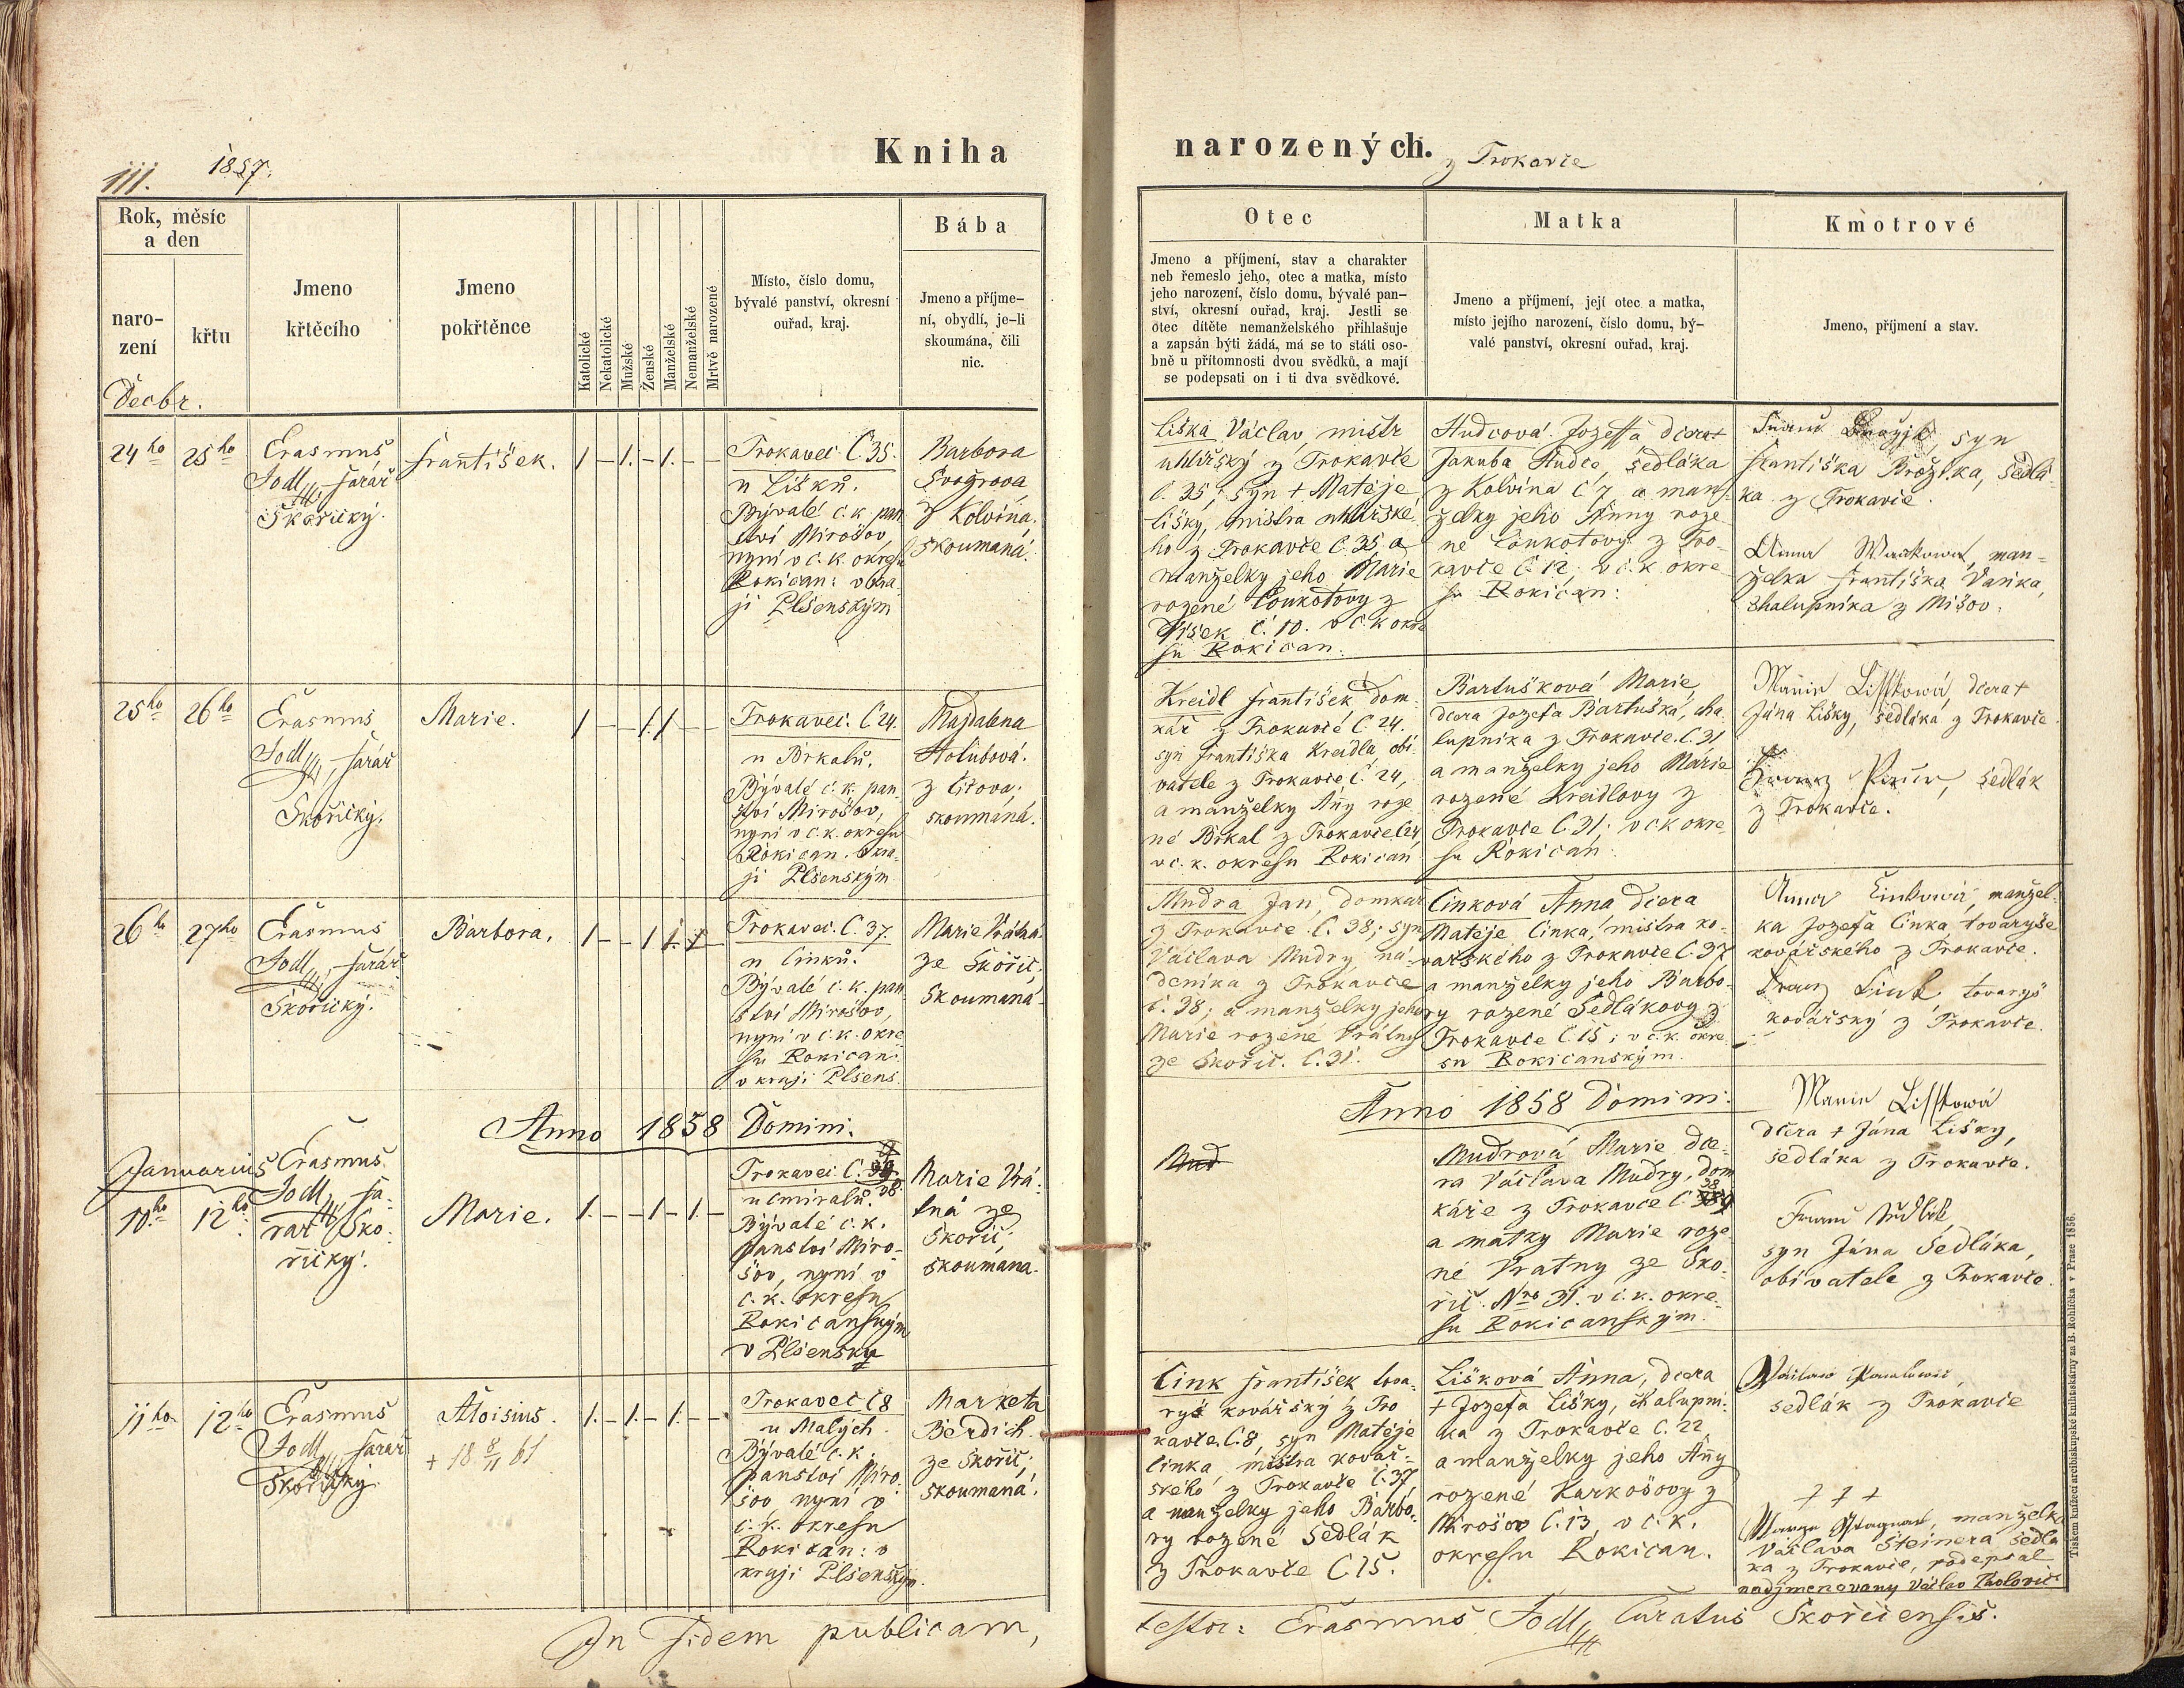 III.
1857.
Kniha
Rok, měsíc
a den
naro-
zení
křtu
Jmeno
křtěcího
Jmeno
pokřtěnce
Katolické
Nekatolické
Mužské
Ženské
Manželské
Nemanželské
Mrtvě narozené
Místo, číslo domu,
bývalé panství, okresní
ouřad, kraj.
Bába
Jmeno a příjme-
ní, obydlí, je-li
skoumána, čili
nic.
Decbr.
24ho
25ho
Erasmus
Jodl, farář
Skořický.
František.
1 – 1. – 1. – –
Trokavec. Č. 35.
u Lišků.
Bývalé c. k. pan
ství Mirošov,
nyní v c. k. okresu
Rokican: v kra
ji Plsenským
Barbora
Švogrova
z Kolvína.
skoumaná.
25ho
26ho
Erasmus
Jodl, farář
Skořický.
Marie.
1 – – 1. 1 – –
Trokavec. Č 24.
u Brkalů.
Bývalé c. k. pan
ství Mirošov,
nyní v c. k. okresu
Rokican. v kra-
ji Plsenským
Majdalena
Holubová.
z Čičova;
skoumáná.
26ho
27ho
Erasmus
Jodl, farář
Skořický.
Barbora.
1 – – 1 1. 1 –
Trokavec. Č. 37.
u Cinků.
Bývalé c. k. pan
ství Mirošov,
nyní v c. k. okre
su Rokican:
v kraji Plsens.
Marie Vrátná
ze Skořic;
skoumaná.
Anno 1858 Domini.
Januarius
10ho
12ho
Erasmus
Jodl, fa-
rář Sko-
řický.
Marie.
1. – – 1 – 1. –
Trokavec. Č.
38.
u Cmiralů.
Bývalé c. k.
panství Miro-
šov, nyní v
c. k. okresu
Rokicanským
v Plsensky
Marie Vrá-
tná ze
Skořic;
skoumana.
11ho
12ho
Erasmus
Jodl, farář
Skořický
Aloisius.
+ 18 8/11 61
1. – 1. – 1. – –
Trokavec Č 8
u Malých.
Bývalé c. k.
panství Miro-
šov, nyní v
c. k. okresu
Rokican: v
kraji Plsenským.
Marketa
Berdich.
ze Skořic;
skoumaná.
In fidem publicam,
narozených.
z Trokavce
Otec
Jmeno a příjmení, stav a charakter
neb řemeslo jeho, otec a matka, místo
jeho narození, číslo domu, bývalé pan-
ství, okresní ouřad, kraj. Jestli se
otec dítěte nemanželského přihlašuje
a zapsán býti žádá, má se to státi oso-
bně u přítomnosti dvou svědků, a mají
se podepsati on i ti dva svědkové.
Matka
Jmeno a příjmení, její otec a matka,
místo jejího narození, číslo domu, bý-
valé panství, okresní ouřad, kraj.
Kmotrové
Jmeno, příjmení a stav.
Liška Václav, mistr
uhlířský z Trokavče
č. 35, syn + Matěje
Lišky, mistra uhlířské
ho z Trokavče č. 35 a
manželky jeho Marie
rozené Loukotovy z
č. 10. v c. k. okre
su Rokican.
Hudcová Jozefa dcera
Jakuba Hudce, sedláka
z Kolvína č 7, a man-
želky jeho Anny roze
né Loukotovy z Tro-
kavče č. 12. v c. k. okre
su Rokican:
syn
Františka Brožíka, sedlá-
ka z Trokavče.
Anna man-
želka Františka Vaňka,
chalupníka z Mišov.
Kreidl František, dom
kář z Trokavče č. 24.
syn Františka Kreidla, obi-
vatele z Trokavče č. 24,
a manželky Anny roze
né Brkal z Trokavče č 24,
v c. k. okresu Rokican
Bartušková Marie,
dcera Jozefa Bartuška, cha
lupníka z Trokavče. č. 31
a manželky jeho Marie
rozené Kreidlovy z
Trokavče č. 31; v c. k. okre
su Rokican.
Marie Lisstowá, dcera +
Jána Lišky, sedláka z Trokavče.
sedlák
z Trokavče.
Mudra Jan, domkář
z Trokavče č. 38; syn
Václava Mudry ná-
deníka z Trokavče
č. 38; a manželky jeho
Marie rozené Vrátny
ze Skořic. č. 31.
Cinková Anna dcera
Matěje Cinka, mistra ko-
vařského z Trokavče č. 37
a manželky jeho Barbo-
ry rozené Sedlákovy z
Trokavče č 15; v c. k. okre
su Rokicanským.
Anna Cinkowá, manžel-
ka Jozefa Cinka, tovaryše
kovářského z Trokavče.
Franz Cink tovaryš
kovářský z Trokavče.
Anno 1858 Domini.
Mud
Mudrová Marie dce-
ra Václava Mudry, dom
káře z Trokavče č. 38
a matky Marie roze
né Vratny ze Sko-
řic. Nro 31. v c. k. okre-
su Rokicanským.
Marie Lisstowá
dcera + Jána Lišky,
sedláka z Trokavče.
Franc Sedlák
syn Jána Sedláka,
obivatele z Trokavče.
Cink František tova-
ryš kovářský z Tro
kavče. č. 8, syn Matěje
Cinka mistra kovář-
ského z Trokavče č. 37
a manželky jeho Barbo-
ry rozené Sedlák
z Trokavče č 15.
Lišková Anna, dcera
+ Jozefa Lišky, chalupní-
ka z Trokavče č. 22
a manželky jeho Anny
rozené Karkošovy z
Mirošov č. 13, v c. k.
okresu Rokican.
Václaw Pawlowic
sedlák z Trokavče
+ + +
manželka
Václava Steinera sedlá
ka z Trokavče, podepsal
nadjmenovany Václav Pavlovic
testor: Erasmus Jodl, Curatus Skořicensis.
Tiskem knížecí arcibiskupské knihtiskárny za B. Rohlíčka v Praze 1856.